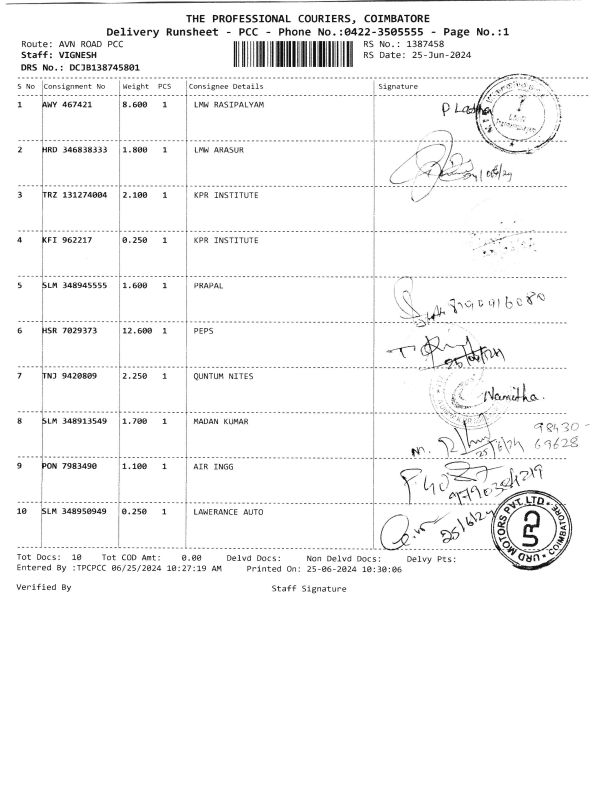 THE PROFESSIONAL COURIERS, COIMBATORE
Delivery Runsheet - PCC - Phone No.:0422-3505555 - Page No.:1
Route: AVN ROAD PCC RS No.: 1387458
Staff: VIGNESH RS Date: 25-Jun-2024
DRS No.: DCJB138745801
S No Consignment No Weight PCS Consignee Details Signature
1 AWY 467421 8.600 1 LMW RASIPALYAM
2 HRD 346838333 1.800 1 LMW ARASUR
3 TRZ 131274004 2.100 1 KPR INSTITUTE
4 KFI 962217 0.250 1 KPR INSTITUTE
5 SLM 348945555 1.600 1 PRAPAL
6 HSR 7029373 12.600 1 PEPS
7 TNJ 9420809 2.250 1 QUNTUM NITES Namitha.
8 SLM 348913549 1.700 1 MADAN KUMAR 98430-
25/6/24 69628
9 PON 7983490 1.100 1 AIR INGG
10 SLM 348950949 0.250 1 LAWERANCE AUTO 25/6/24
URD MOTORS PVT. LTD. COIMBATORE
Tot Docs: 10 Tot COD Amt: 0.00 Delvd Docs: Non Delvd Docs: Delvy Pts:
Entered By :TPCPCC 06/25/2024 10:27:19 AM Printed On: 25-06-2024 10:30:06
Verified By Staff Signature